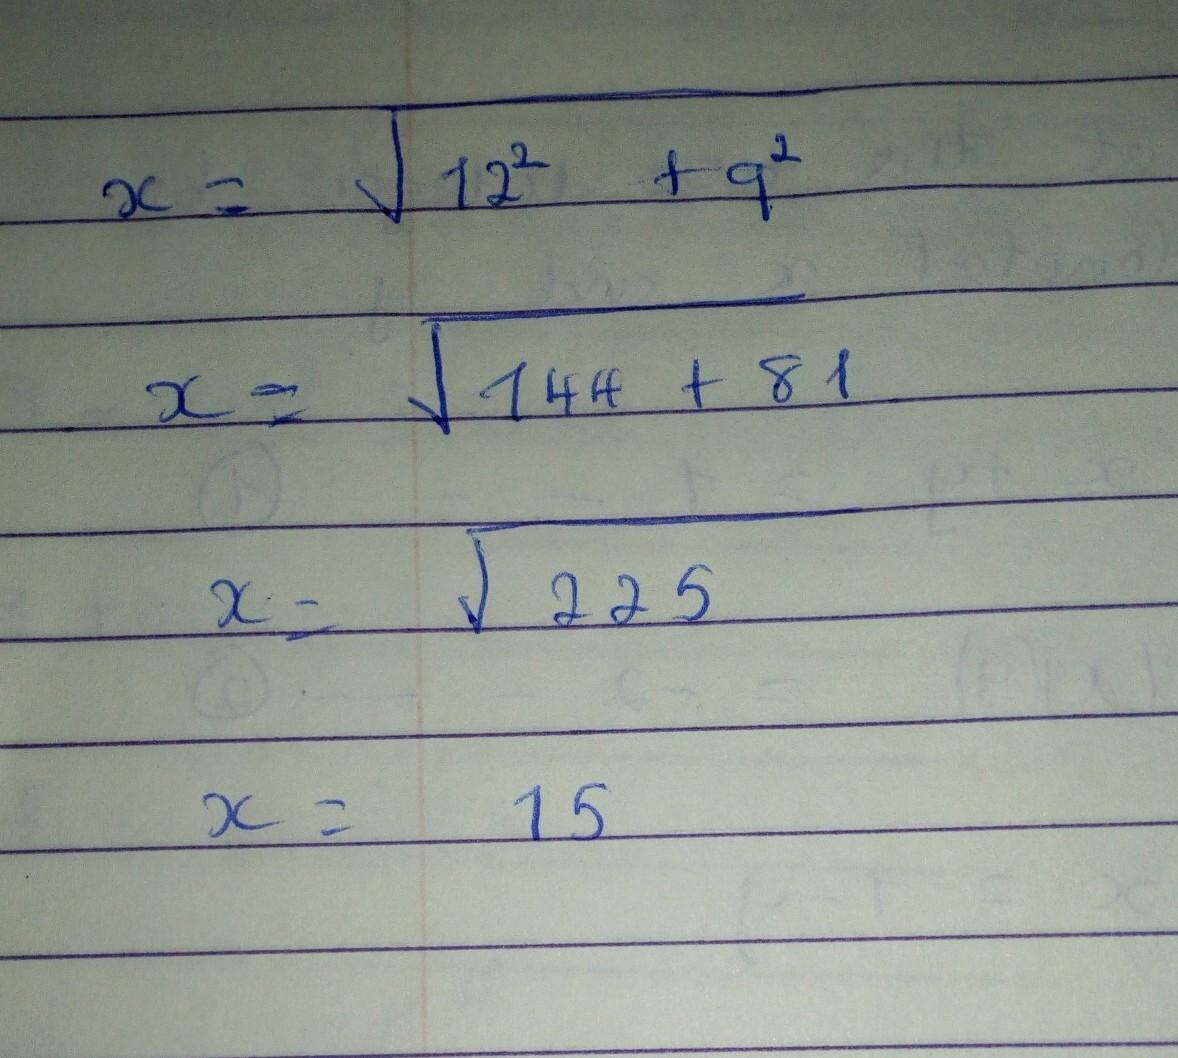 x = √12² + 9²
x = √144 + 81
x = √225
x = 15